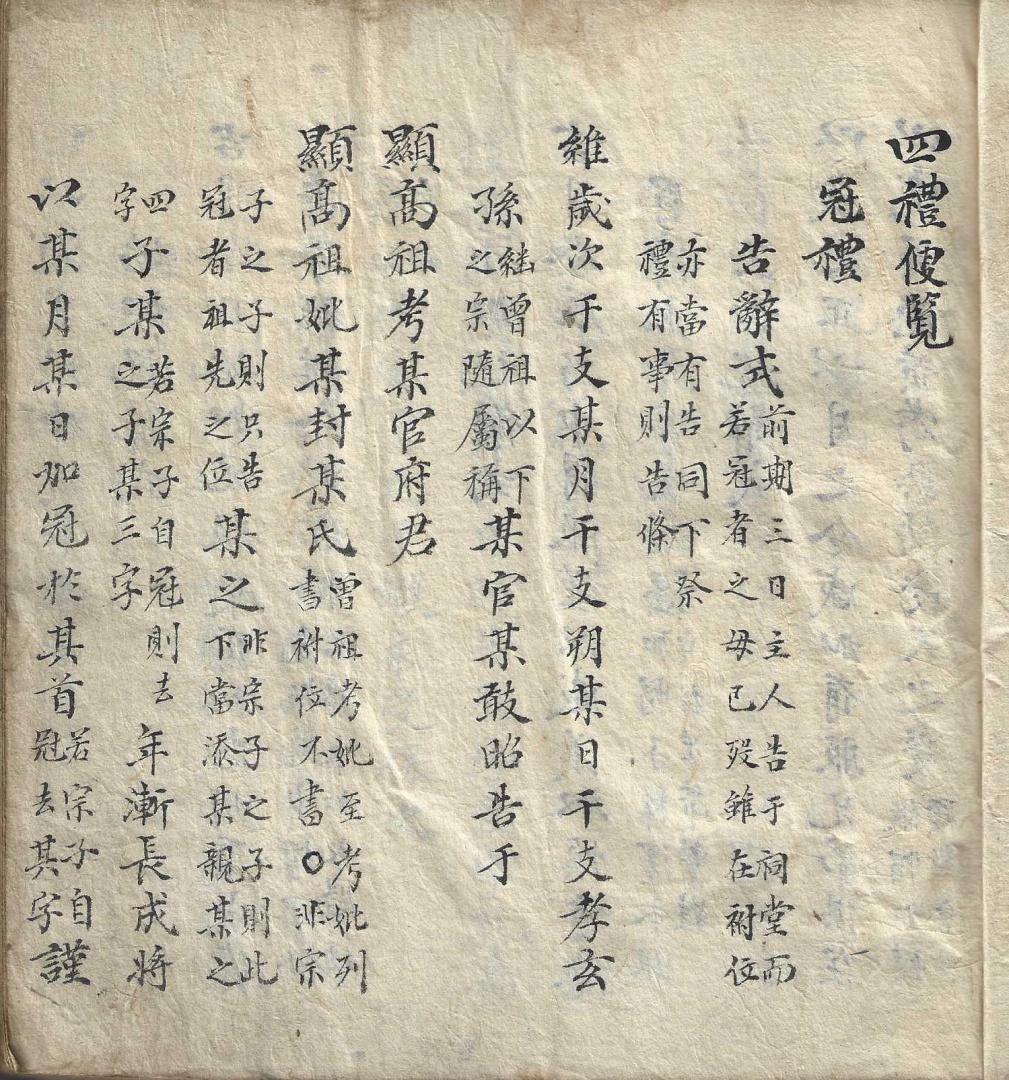 四禮便覧
冠禮
告辭式前期三日主人告于祠堂而若冠者之母已殁雖在祔位
亦當有告同下祭禮有事則告條
維歲次干支某月干支朔某日干支孝玄
孫継曾祖以下之宗隨屬稱某官某敢昭告于
顯髙祖考某官府君
顯髙祖妣某封某氏曾祖考妣至考妣列書祔位不書○非宗
子之子則只告冠者祖先之位某之非宗子之子則此下當添某親某之
四字子某若宗子自冠則去之子某三字年漸長成將
以某月某日加冠於其首若宗子自冠去其字謹